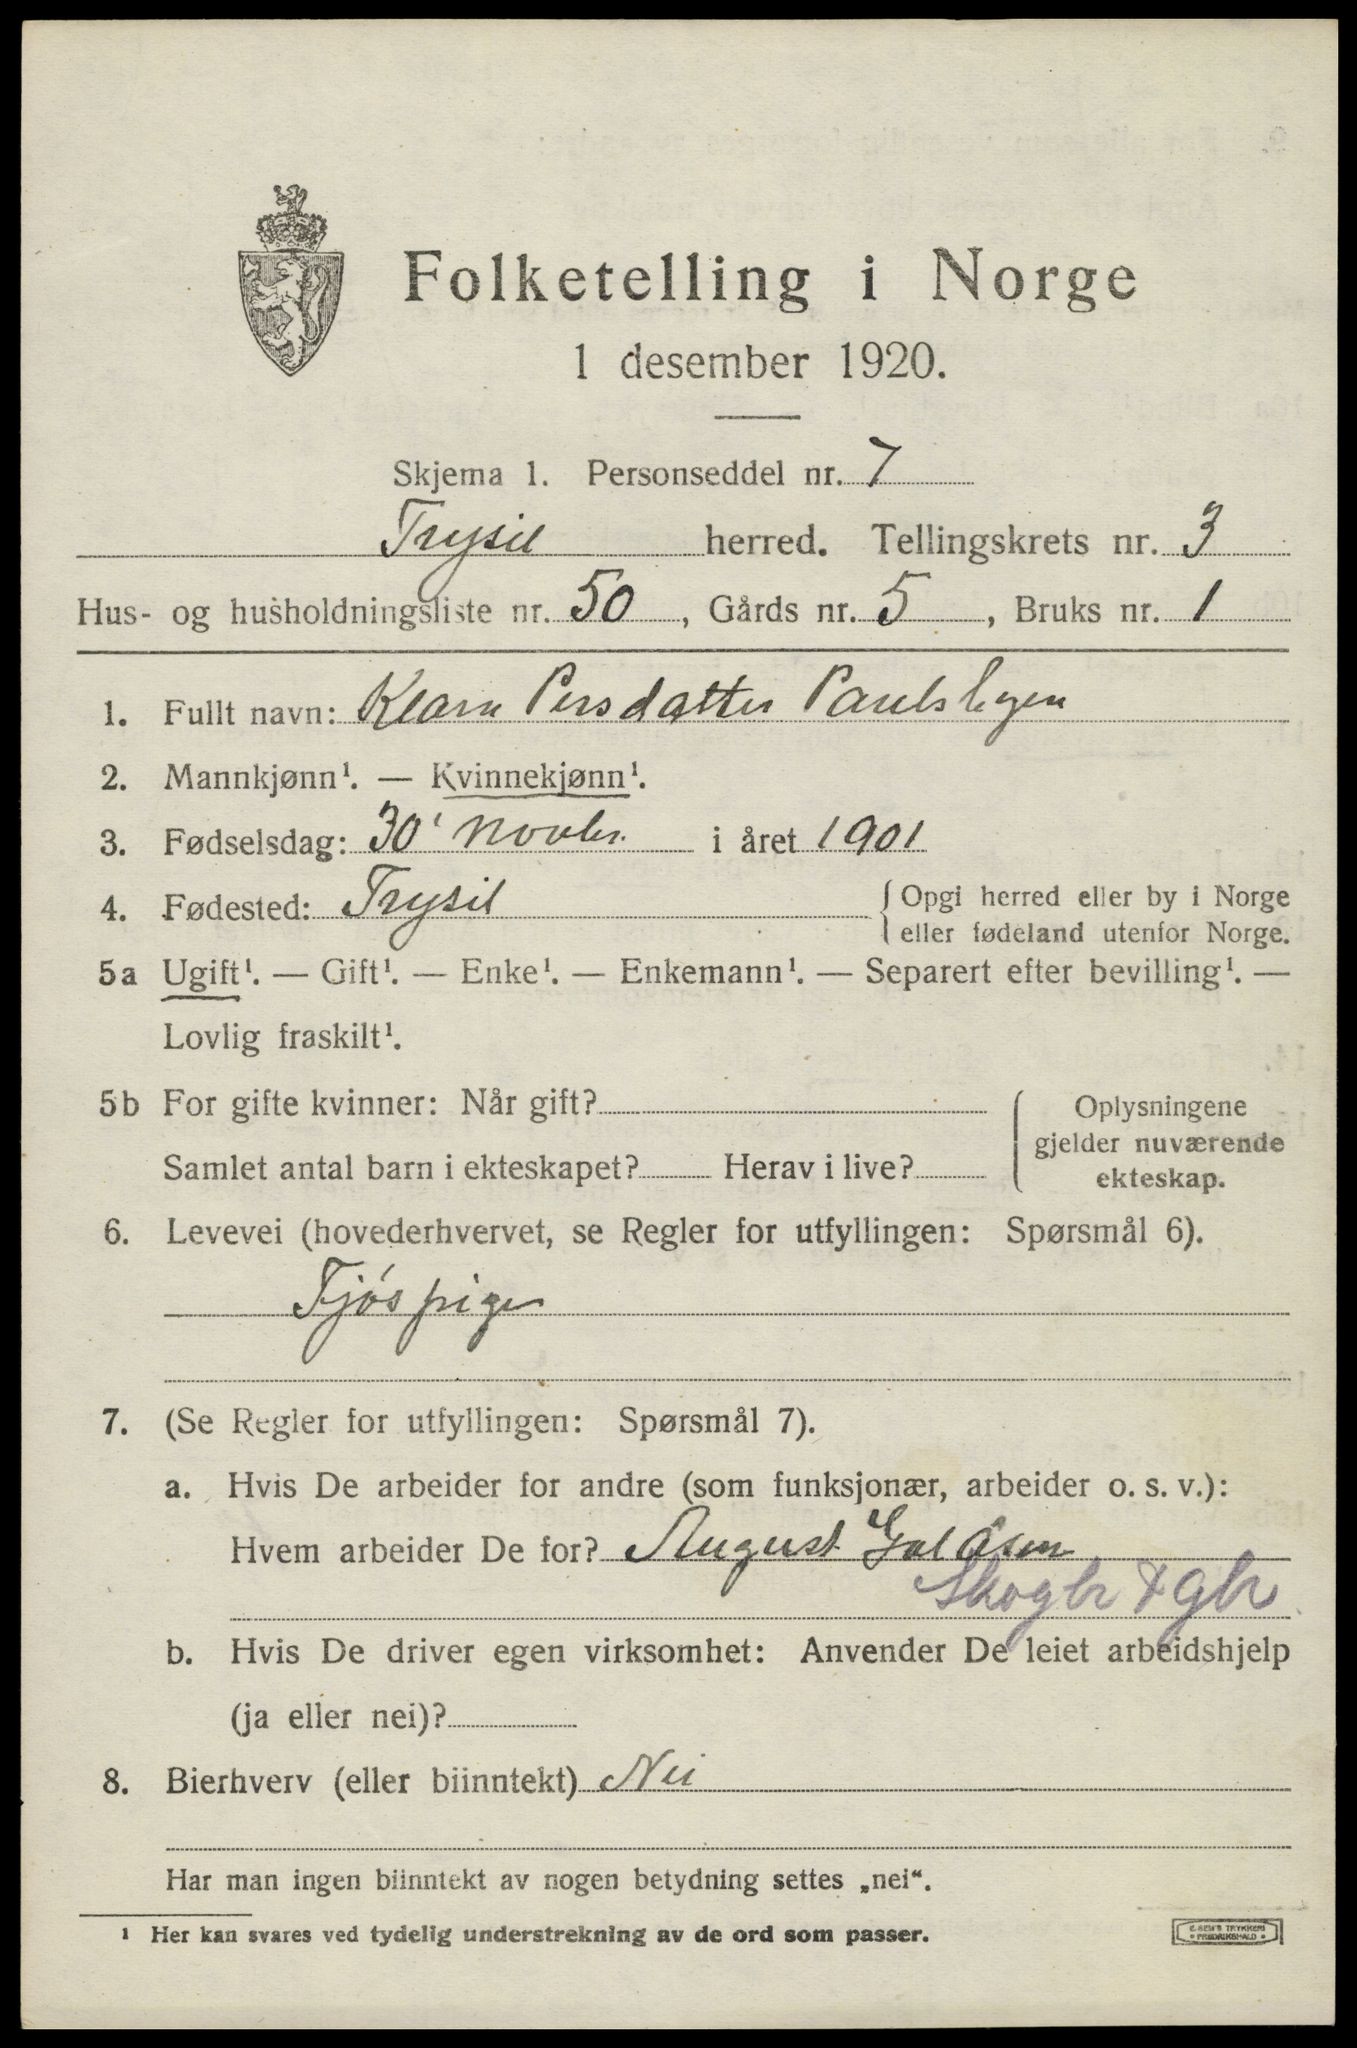 Folketelling i Norge
1 desember 1920.
Skjema 1. Personseddel nr. 7
Trysil herred. Tellingskrets nr. 3
Hus- og husholdningsliste nr. 50, Gårds nr. 5, Bruks nr. 1
1. Fullt navn: Klara Persdatter
2. Mannkjønn¹. — Kvinnekjønn¹.
3. Fødselsdag: 30' Novbr. i året 1901
4. Fødested: Trysil {Opgi herred eller by i Norge
eller fødeland utenfor Norge.
5a Ugift¹. — Gift¹. — Enke¹. — Enkemann¹. — Separert efter bevilling¹. —
Lovlig fraskilt¹.
5b For gifte kvinner: Når gift?
Samlet antal barn i ekteskapet? Herav i live?
Oplysningene
gjelder nuværende
ekteskap.
6. Levevei (hovederhvervet, se Regler for utfyllingen: Spørsmål 6).
Fjøspige
7. (Se Regler for utfyllingen: Spørsmål 7).
a. Hvis De arbeider for andre (som funksjonær, arbeider o. s. v.):
Hvem arbeider De for? August Galåsen
Skogbr & gbr
b. Hvis De driver egen virksomhet: Anvender De leiet arbeidshjelp
(ja eller nei)?
8. Bierhverv (eller biinntekt) Nei
Har man ingen biinntekt av nogen betydning settes „nei“.
¹ Her kan svares ved tydelig understrekning av de ord som passer.
E. SEM'S TRYKKERI
• FREDRIKSHALD •